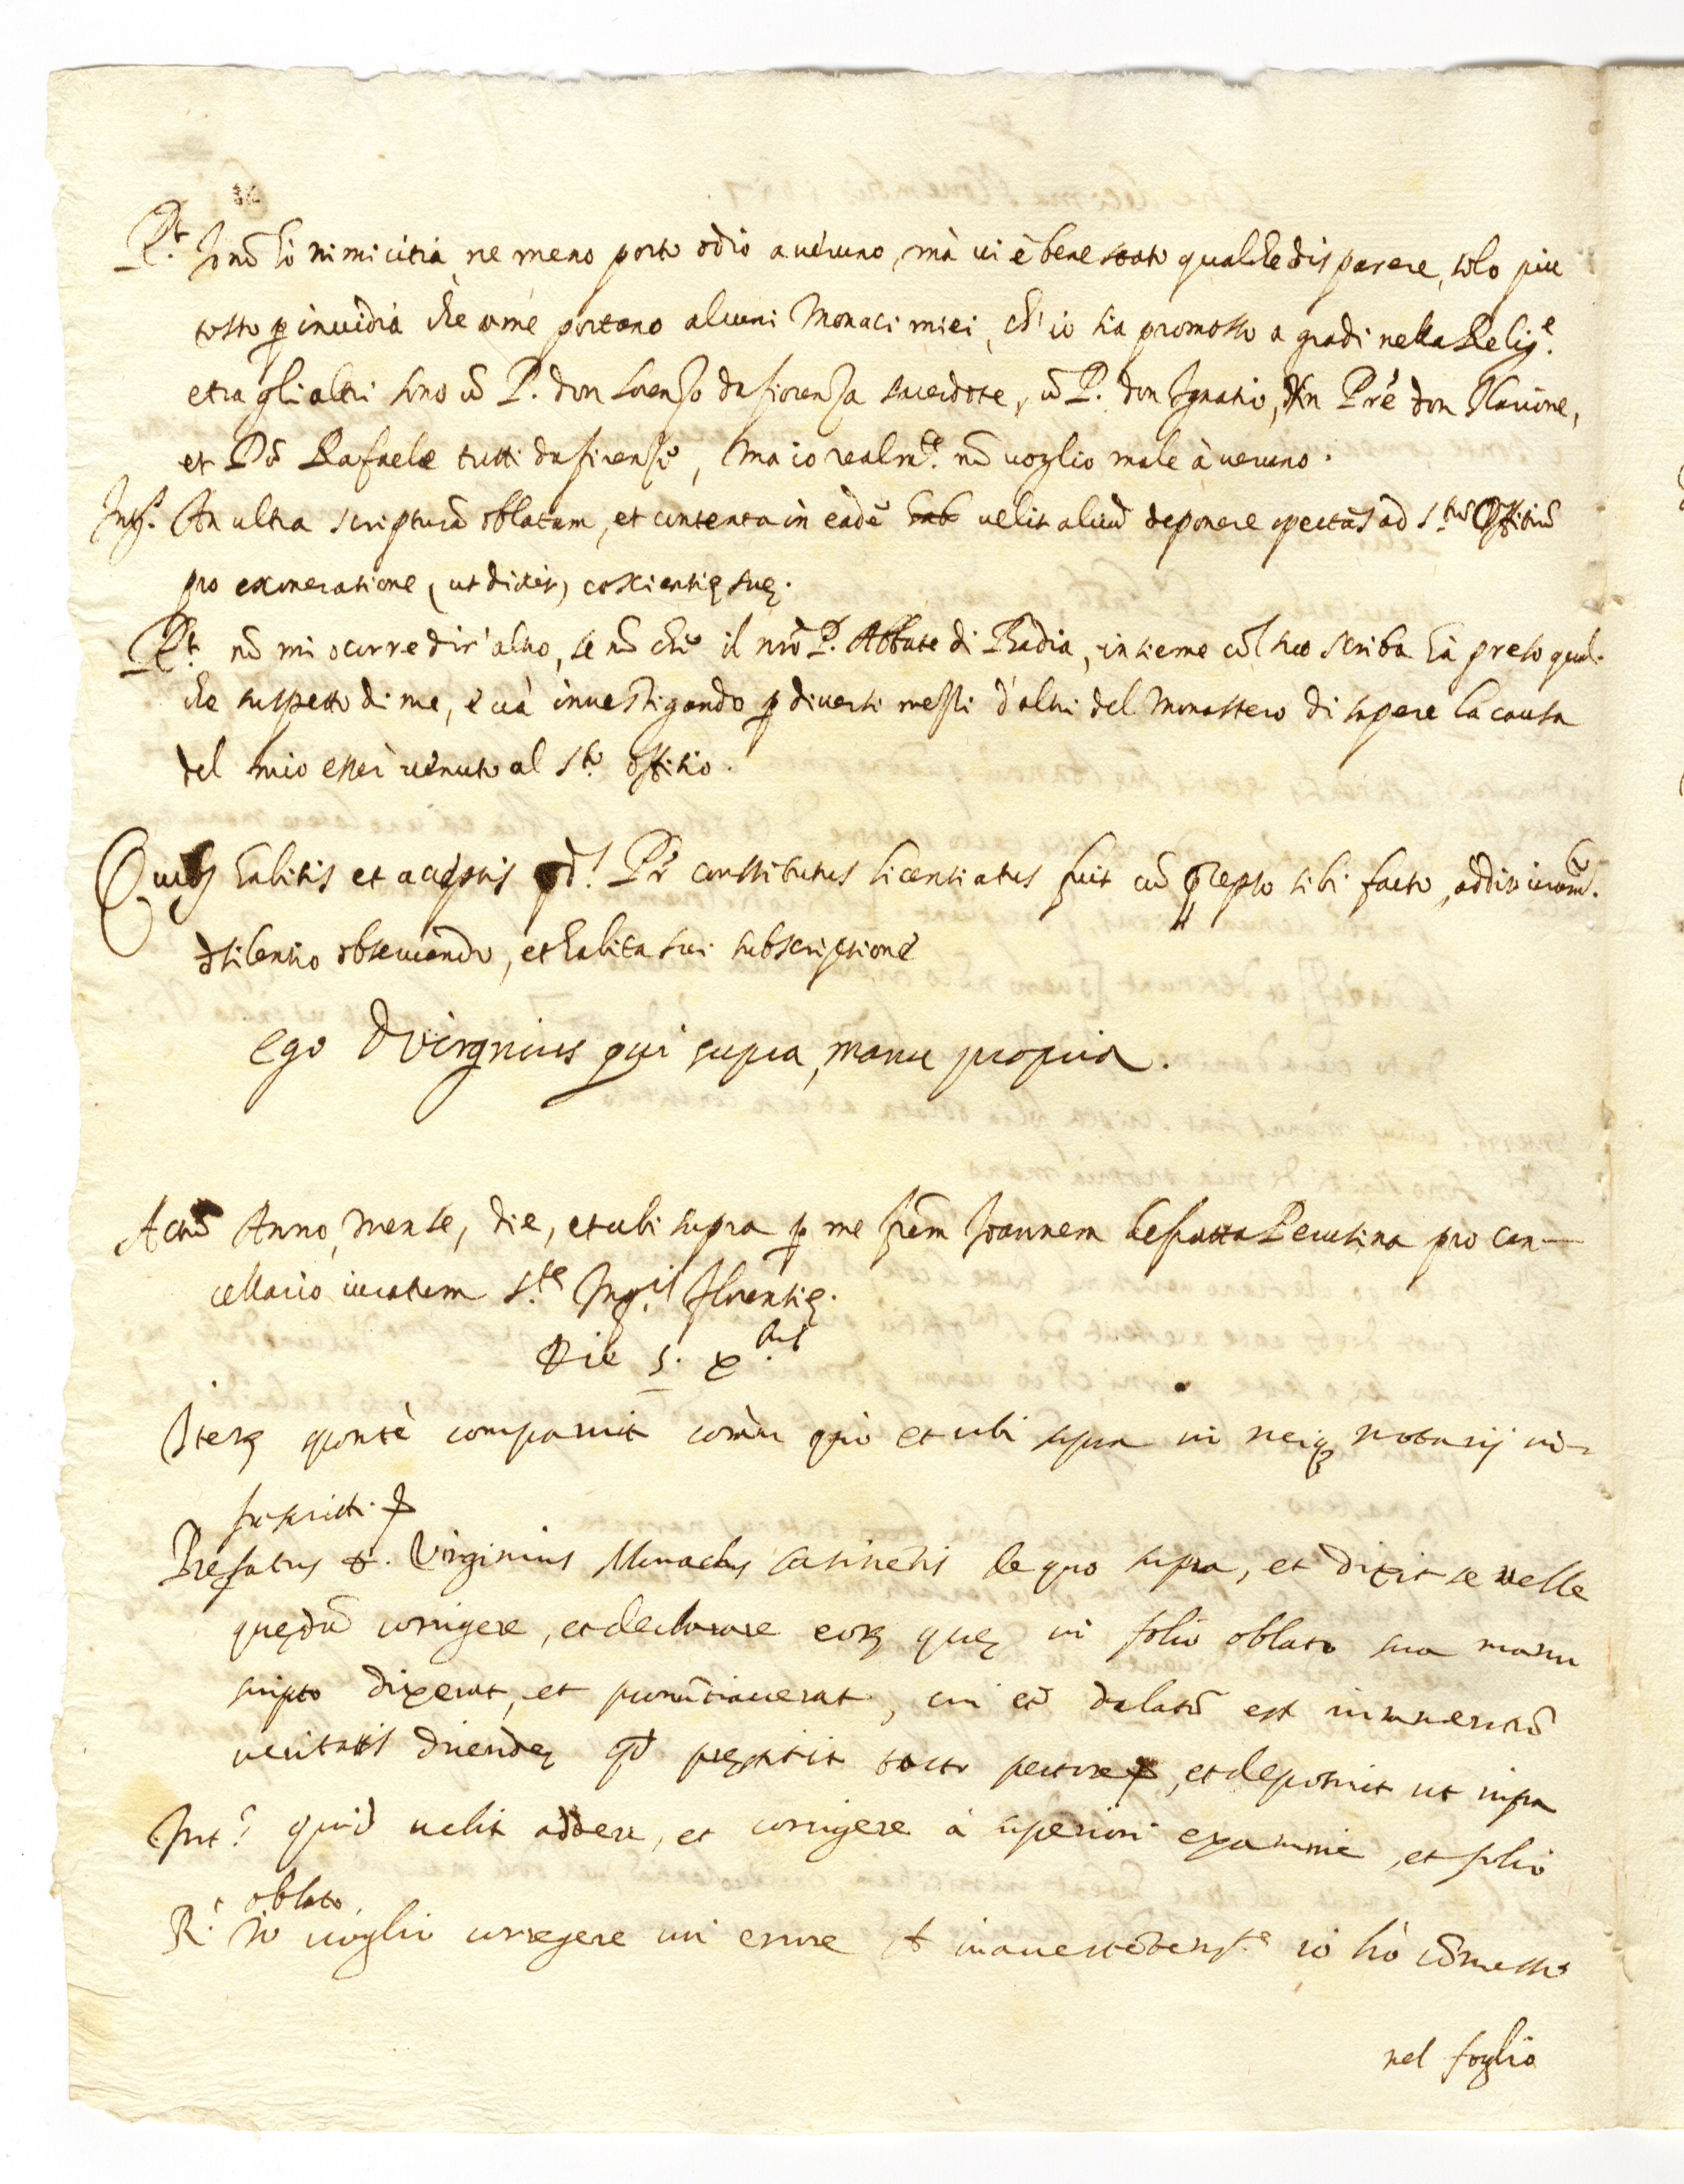 Rt. Io nō hò nimicitia, ne meno porto odio a veruno, mà vi è bene stato qualche disparere, solo più
tosto p invidia che a me portano alcuni Monaci miei, ch' io sia promosso a gradi nella Relig.e
e tra gli altri sono ū P. don Lorenzo da fiorenza sacerdote, ū P. don Ignatio, Un Prē don
et Dō Rafaele tutti da firenze, ma io realm.te nō voglio male à veruno.
Int.s An ultra scripturā oblatam, et contenta in eadē velit aliud deponere spectās ad S.tum Offitiū
pro exoneratione, (ut dixit) coscientię suę.
Rt. nō mi ocorre dir' altro, se nō che il nrō P. Abbate di Badia, insieme cōl suo scriba hà preso qual-
che suspetto di me, e và investigando p diversi messi d'altri del Monastero di sapere la causa
del mio esser venuto al S.to offitio.
Quibs habitis et acceptis Pr constitutus licentiatus fuit cū p̄cepto sibi facto, addito iuram.to
d silentio observando, et habita sui subscriptione
Ego D Virginius qui supra, manu propria.
Actū Anno, mense, die, et ubi supra p me frēm Joannem pro can-
cellario iuratum S.te Inq.is florentię.
Die 5. Xbris
Iterų spontè comparuit corām quo et ubi supra in meiq notarij in-
frascritti
Prefatus D. Virginius Monachus Casinēsis de quo supra, et dixit se velle
quędā corrigere, et declarare eorų quę in folio oblato sua manu
scripto dixerat, et pronūtiaverat, cui eā delatō est iuramentō
veritatis dicendę qd pręstitit tacto pectore, et deposuit ut infra
Int.s quid velit addere, et corrigere à superiori examine, et folio
oblato.
R.t Io voglio corregere un errore ch inavertētem.te io hò cōmesso
nel foglio